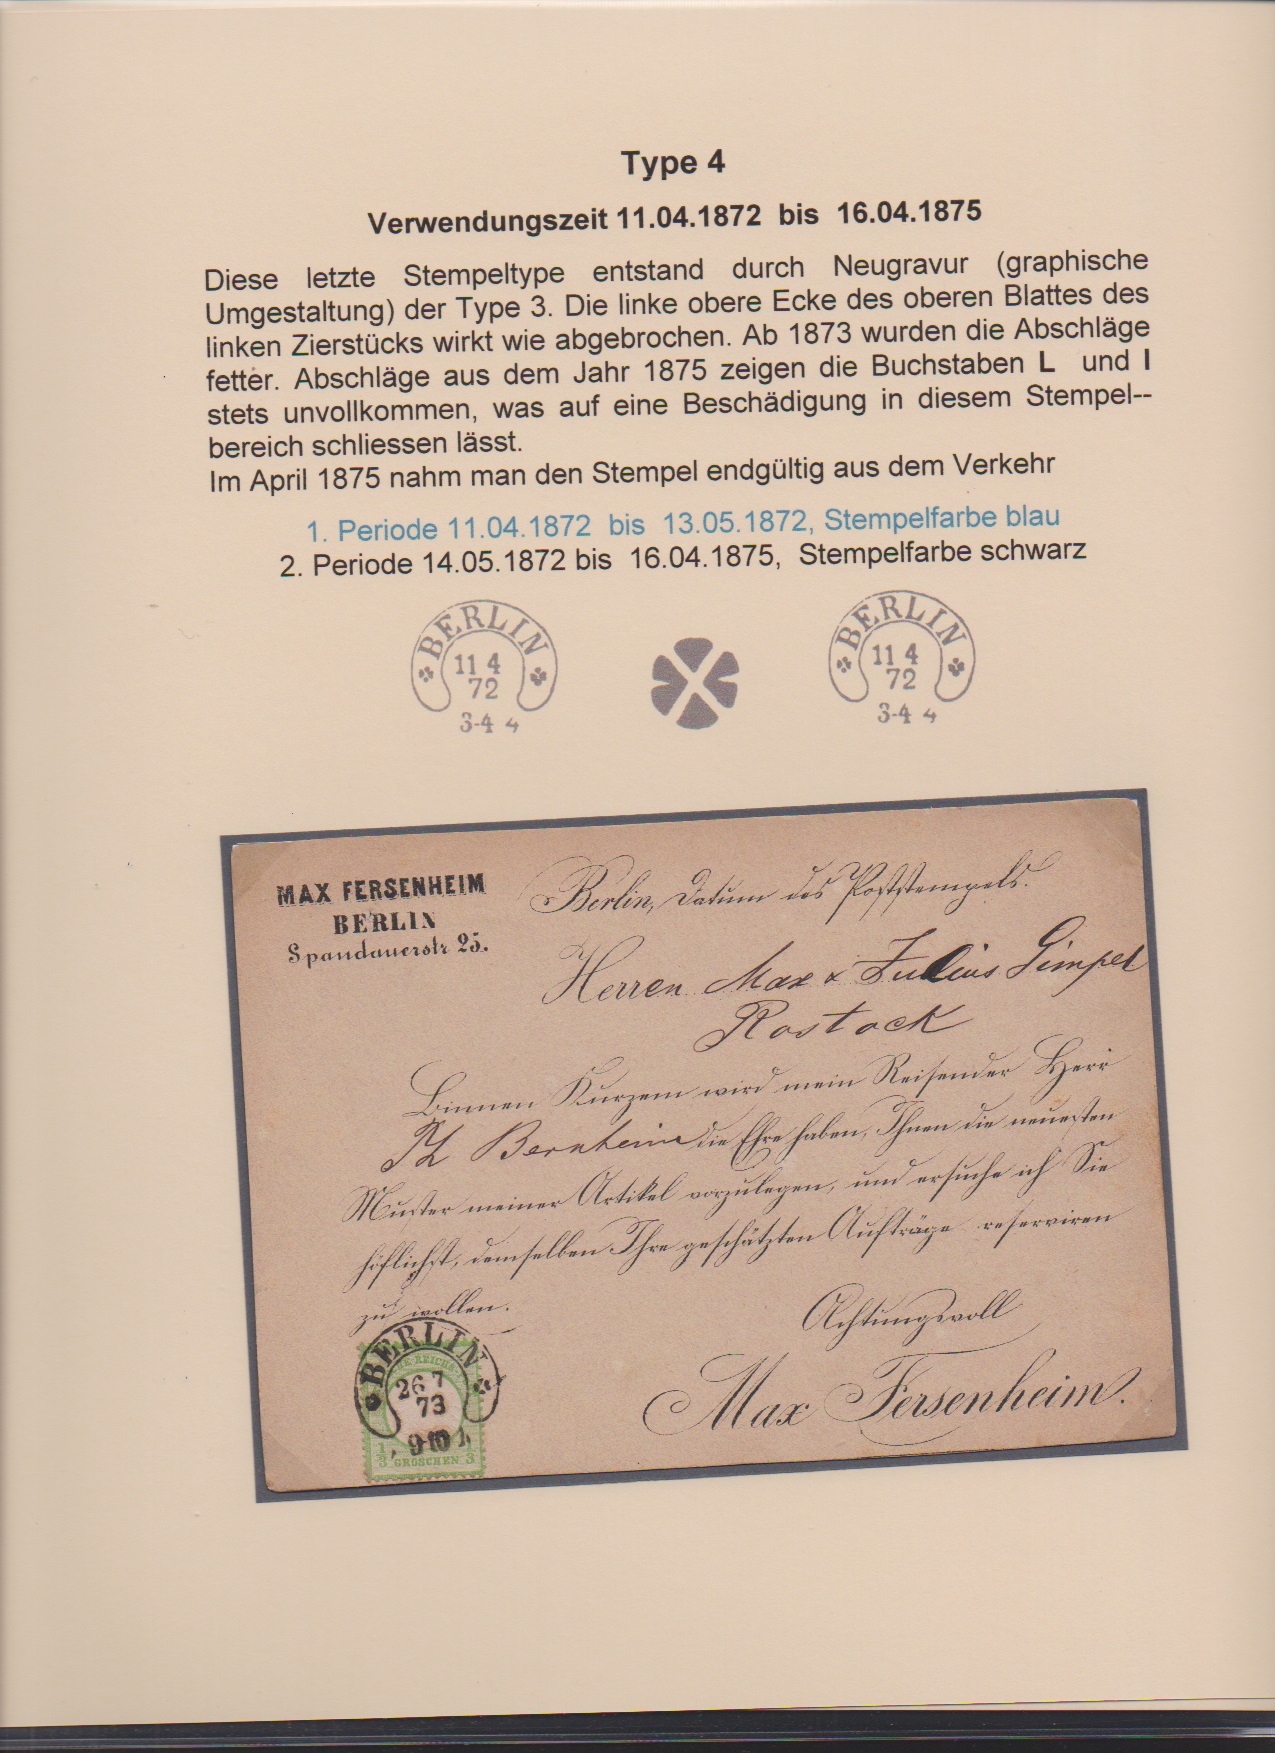 Type 4
Verwendungszeit 11.04.1872 bis 16.04.1875
Diese letzte Stempeltype entstand durch Neugravur (graphische
Umgestaltung) der Type 3. Die linke obere Ecke des oberen Blattes des
linken Zierstücks wirkt wie abgebrochen. Ab 1873 wurden die Abschläge
fetter. Abschläge aus dem Jahr 1875 zeigen die Buchstaben L und I
stets unvollkommen, was auf eine Beschädigung in diesem Stempel--
bereich schliessen lässt.
Im April 1875 nahm man den Stempel endgültig aus dem Verkehr
1. Periode 11.04.1872 bis 13.05.1872, Stempelfarbe blau
2. Periode 14.05.1872 bis 16.04.1875, Stempelfarbe schwarz
BERLIN
11 4
72
3-4 4
BERLIN
11 4
72
3-4 4
MAX FERSENHEIM
BERLIN
Spandauerstr 25.
Berlin, Datum des Poststempels.
Herren Max & Julius Gimpel
Rostock
Binnen Kurzem wird mein Reisender Herr
Bernheim die Ehre haben, Ihnen die neuesten
Muster meiner Artikel vorzulegen, und ersuche ich Sie
höflichst, demselben Ihre geschätzten Aufträge reserviren
zu wollen.
Achtungsvoll
Max Fersenheim.
BERLIN
26 7
73
9-10
1/3 GROSCHEN 1/3